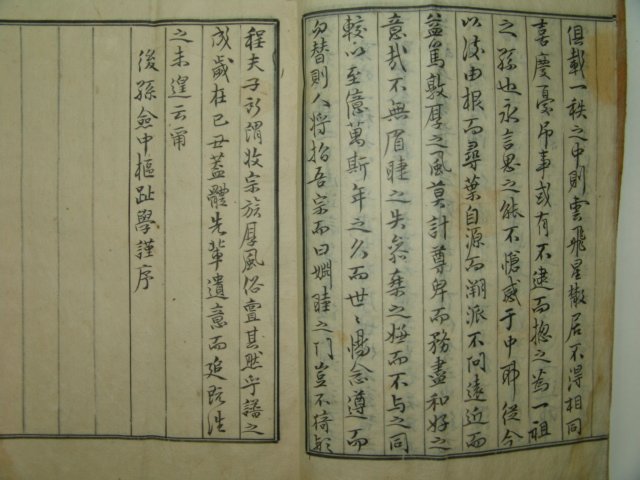 俱載一秩之中則雲飛星散居不得相同
喜慶憂吊事或有不逮而摠之爲一祖
之孫也永言思之能不愴感于中耶從今
以後由根而尋葉自源而溯派不问遠近而
益篤敦厚之風莫計尊卑而務盡和好之
意哉不無眉睫之失參桑之嫌而不与之同
較以至億萬斯年之久而世〻惕念遵而
勿替則人將指吾宗而曰婣睦之门豈不猗歟
程夫子所謂收宗族厚風俗亶其然乎譜之
成歲在己丑盖體先輩遺意而追
之未遑云甭
後孫僉中樞趾學謹序